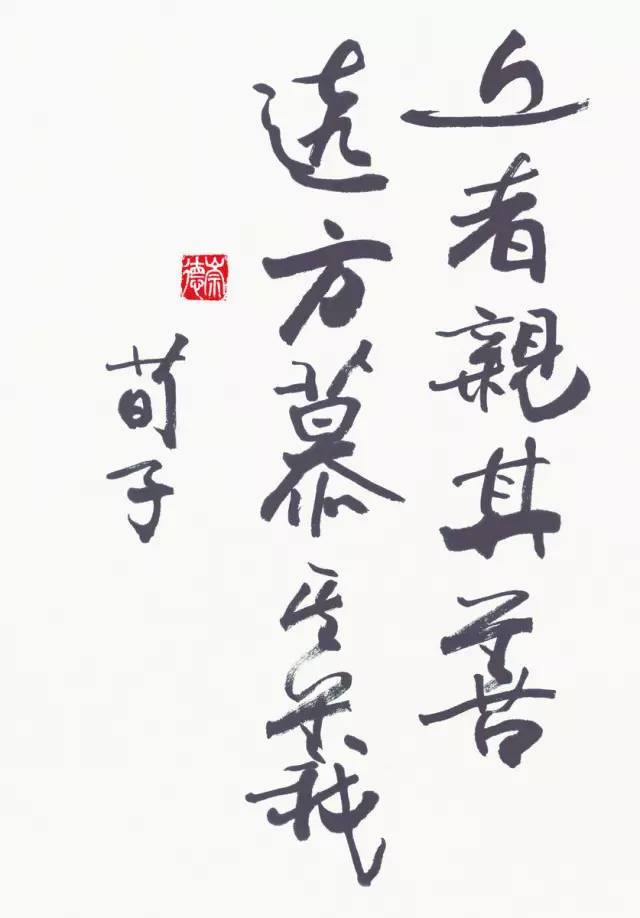 近者親其善
遠方慕其義
崇德
荀子